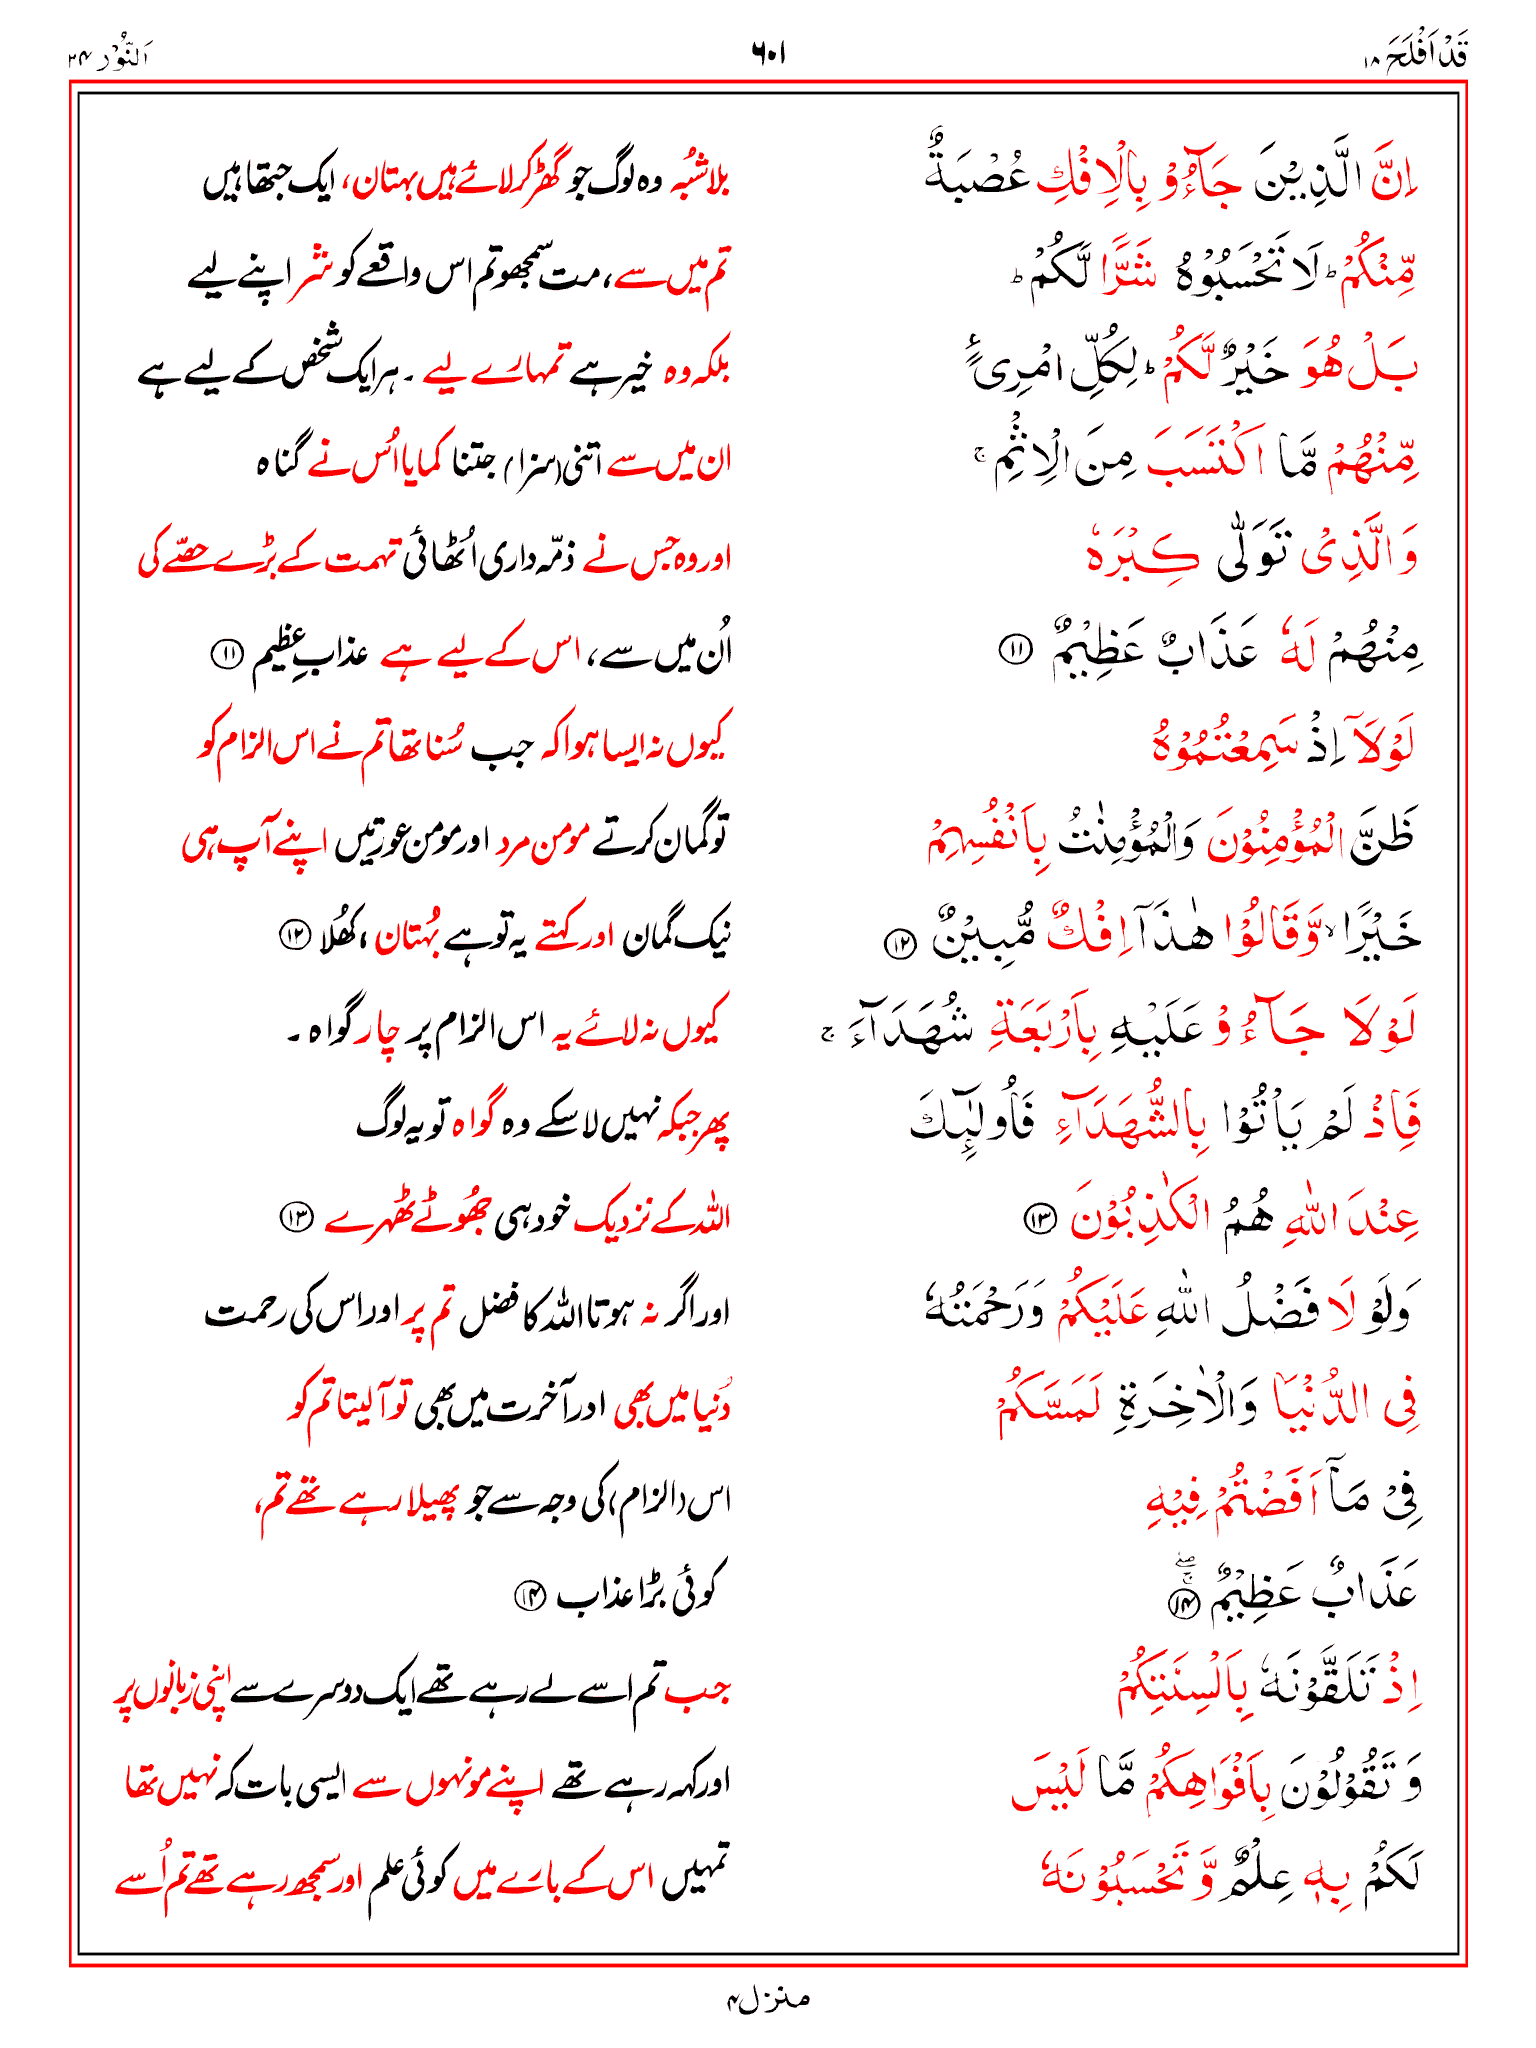 قَدْ اَفْلَحَ ۱۸
۶۰۱
اَلنُّوْر ۲۴
اِنَّ الَّذِيْنَ جَآءُوْ بِالْاِفْكِ عُصْبَةٌ
بلاشُبہ وہ لوگ جو گھڑ کر لائے ہیں بہتان، ایک جتھا ہیں
مِّنْكُمْ ؕ لَا تَحْسَبُوْهُ شَرًّا لَّكُمْ ؕ
تم میں سے، مت سمجھو تم اس واقعے کو شر اپنے لیے
بَلْ هُوَ خَيْرٌ لَّكُمْ ؕ لِكُلِّ امْرِیًٔ
بلکہ وہ خیر ہے تمہارے لیے ۔ ہر ایک شخص کے لیے ہے
مِّنْهُمْ مَّا اكْتَسَبَ مِنَ الْاِثْمِ ۚ
ان میں سے اتنی (سزا) جتنا کمایا اُس نے گناہ
وَالَّذِیْ تَوَلّٰى كِبْرَهٗ
اور وہ جس نے ذمّہ داری اُٹھائی تہمت کے بڑے حصّے کی
مِنْهُمْ لَهٗ عَذَابٌ عَظِيْمٌ ⑪
اُن میں سے، اس کے لیے ہے عذابِ عظیم ⑪
لَوْلَاۤ اِذْ سَمِعْتُمُوْهُ
کیوں نہ ایسا ہوا کہ جب سُنا تھا تم نے اس الزام کو
ظَنَّ الْمُؤْمِنُوْنَ وَالْمُؤْمِنٰتُ بِاَنْفُسِهِمْ
تو گمان کرتے مومن مرد اور مومن عورتیں اپنے آپ ہی
خَيْرًا ۙ وَّقَالُوْا هٰذَاۤ اِفْكٌ مُّبِيْنٌ ⑫
نیک گمان اور کہتے یہ تو ہے بُہتان ، کھُلا ⑫
لَوْلَا جَآءُوْ عَلَيْهِ بِاَرْبَعَةِ شُهَدَآءَ ۚ
کیوں نہ لائے یہ اس الزام پر چار گواہ ۔
فَاِذْ لَمْ يَاْتُوْا بِالشُّهَدَآءِ فَاُولٰٓئِكَ
پھر جبکہ نہیں لا سکے وہ گواہ تو یہ لوگ
عِنْدَ اللّٰهِ هُمُ الْكٰذِبُوْنَ ⑬
اللہ کے نزدیک خود ہی جھُوٹے ٹھہرے ⑬
وَلَوْ لَا فَضْلُ اللّٰهِ عَلَيْكُمْ وَرَحْمَتُهٗ
اور اگر نہ ہوتا اللہ کا فضل تم پر اور اس کی رحمت
فِی الدُّنْيَا وَالْاٰخِرَةِ لَمَسَّكُمْ
دُنیا میں بھی اور آخرت میں بھی تو آلیتا تم کو
فِیْ مَاۤ اَفَضْتُمْ فِيْهِ
اس (الزام) کی وجہ سے جو پھیلا رہے تھے تم،
عَذَابٌ عَظِيْمٌ ⑭ ۚۖ
کوئی بڑا عذاب ⑭
اِذْ تَلَقَّوْنَهٗ بِاَلْسِنَتِكُمْ
جب تم اسے لے رہے تھے ایک دوسرے سے اپنی زبانوں پر
وَ تَقُوْلُوْنَ بِاَفْوَاهِكُمْ مَّا لَيْسَ
اور کہہ رہے تھے اپنے مونہوں سے ایسی بات کہ نہیں تھا
لَكُمْ بِهٖ عِلْمٌ وَّ تَحْسَبُوْنَهٗ
تمہیں اس کے بارے میں کوئی علم اور سمجھ رہے تھے تم اُسے
منزل ۴